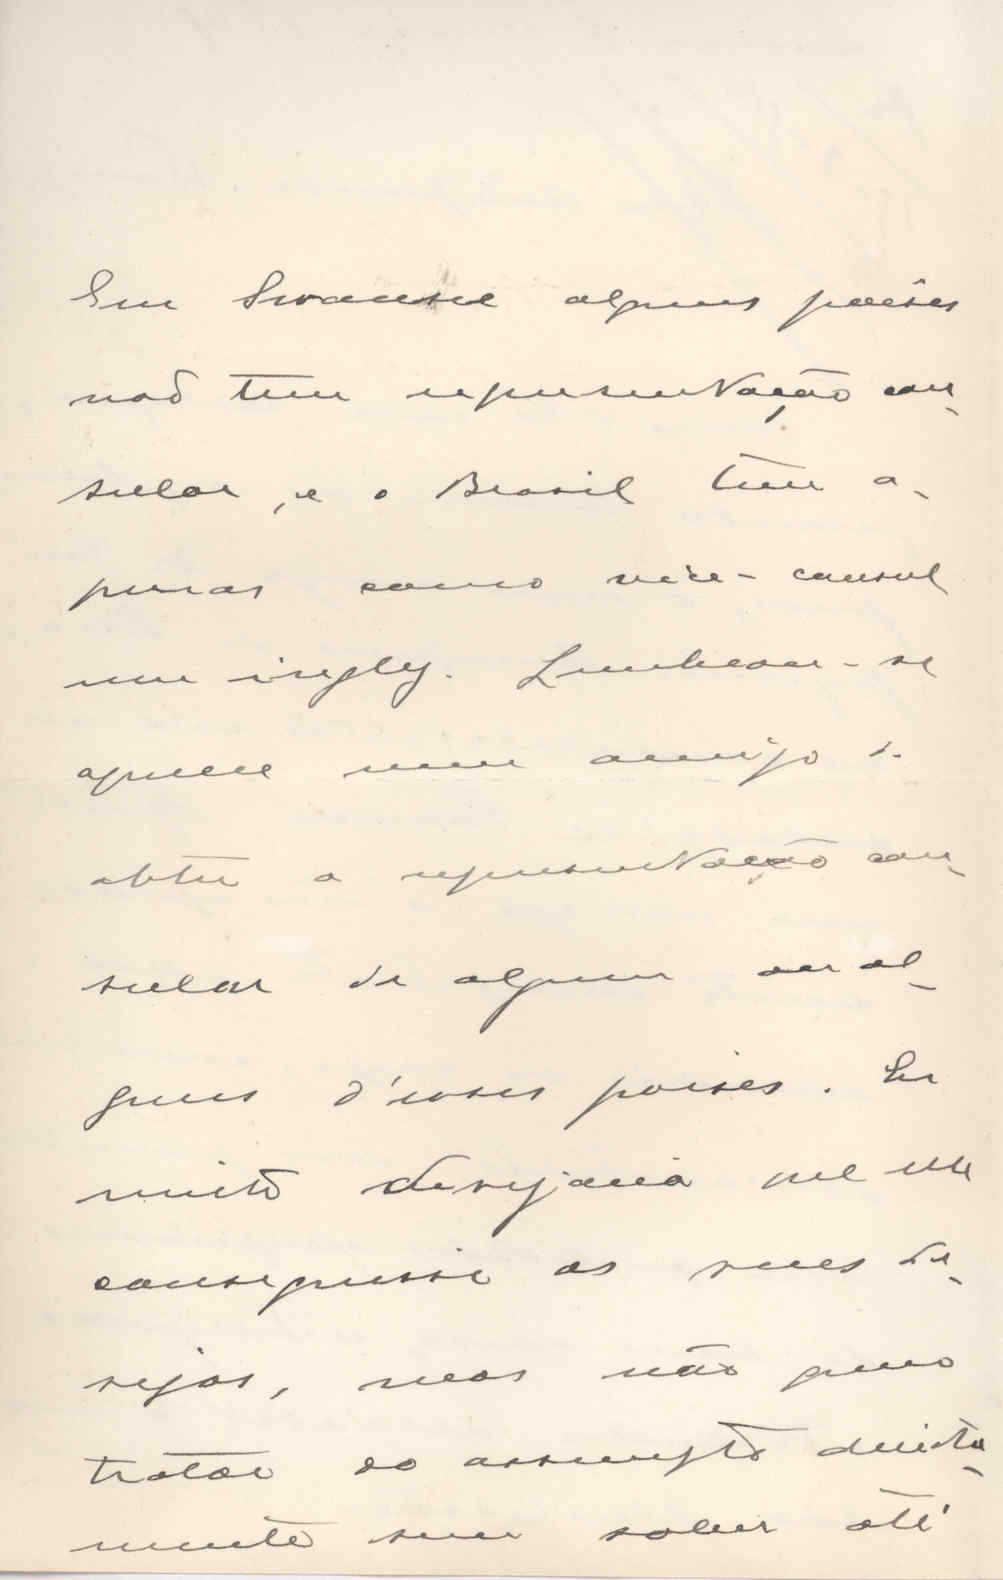 Em Swansea alguns paeses
não tem representação con-
sular, e o Brasil tem a-
penas como vice-consul
um inglez. Lembrou-se
aquele meu amigo de
obter a representação con-
sular de algum ou al-
guns d'esses paises. Eu
muito desejaria que elle
conseguisse os seus de-
sejos, mas não quero
tratar do assumpto directa-
mente sem saber até